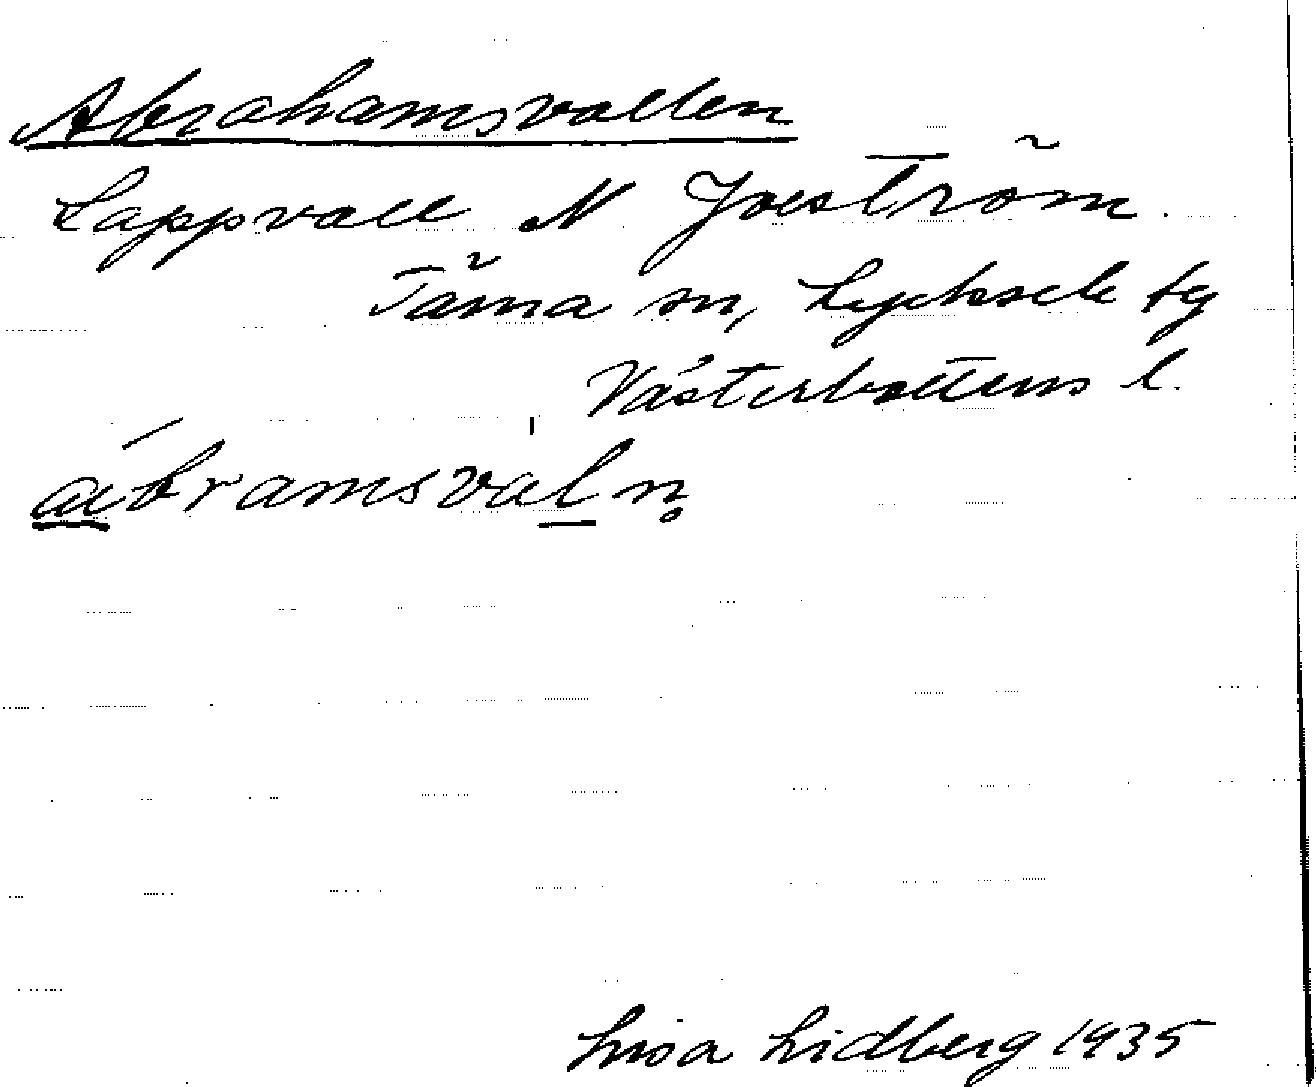 Abrahamsvallen
Lappvall N Joeström.
Tärna sn, Lycksele tg
Västerbottens l.
ábramsvaln̥
Lisa Lidberg 1935